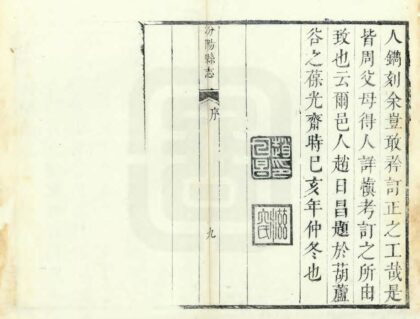 人鐫刻余豈敢矜訂正之工哉是
皆周父母得人詳慎考訂之所由
致也云爾邑人趙日昌題於葫蘆
谷之葆光齋時巳亥年仲冬也
汾陽縣志
序
九